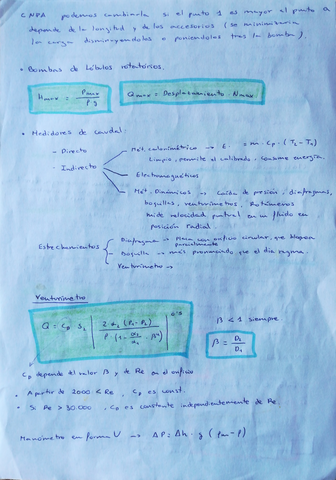 CNPA podemos cambiarla si el punto 1 es mayor el punto 2
depende de la longitud y de los accesorios (se minimizaria
la carga disminuyendolos o poniendolos tras la bomba).
• Bombas de lóbulos rotatorios.
Hmax = Pmax / ρ·g
Qmax = Desplazamiento · Nmax
• Medidores de caudal:
- Directo
- Indirecto
Mét. calorimétrico → E = m · Cp · (T2 - T1)
Limpio, permite el calibrado, consume energía.
Electromagnéticos
Mét. Dinámicos → Caída de presión, diafragmas,
boquillas, venturimetros, Rotámeros
mide velocidad puntual en un fluido en
posición radial
Estrechamientos
Diafragma → Placa con orificio circular, que bloquea
parcialmente
Boquilla → más pronunciado que el diafragma
Venturimetro →
Venturimetro
Q = CD S2 | 2·α2 (P1-P2) / ρ·(1 - α2/α1 · β⁴) |^0'5
β < 1 siempre
β = D2 / D1
CD depende del valor β y de Re en el orificio
• A partir de 2000 < Re, CD es const.
• Si Re > 30.000, CD es constante independientemente de Re.
Manómetro en forma U → ΔP = Δh · g (ρm - ρ)